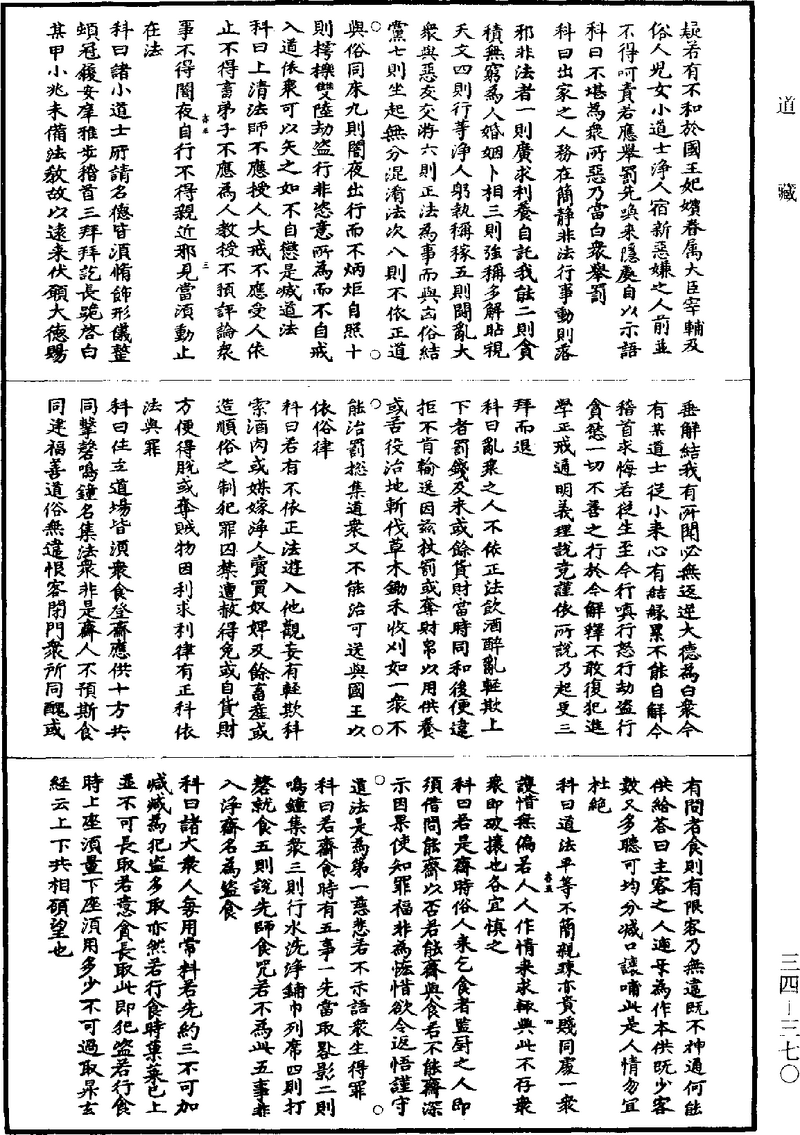 道藏
疑若有不和於國王妃嬪眷屬大臣宰輔及
俗人兒女小道士淨人宿新惡嫌之人前並
不得呵責若應舉罰先喚來隱處自以示語
科曰不堪為眾所惡乃當白眾舉罰
科曰出家之人務在簡靜非法行事動則落
邪非法者一則廣求利養自託我能二則貪
積無窮為人婚姻卜相三則強稱多解貼視
天文四則行等淨人躬執稱稼五則鬪亂大
眾與惡友交游六則正法為事而與凶俗結
黨七則坐起無分混淆法次八則不依正道
與俗同床九則闇夜出行而不炳炬自照十
則摴擽雙陸劫盜行非恣意所為而不自戒
入道依眾可以矢之如不自愆是减道法
科曰上清法師不應授人大戒不應受人依
止不得畜弟子不應為人教授不預評論眾
事不得闇夜自行不得親近邪見當須動止
在法
科曰諸小道士所請名德皆須脩飾形儀整
頓冠履安庠雅步稽首三拜拜訖長跪啓白
某甲小兆未備法教故以遠來伏願大德賜
垂解結我有所聞必無返逆大德為白眾令
有某道士從小來心有結縁累不能自解今
稽首求悔若從生至今行嗔行怒行劫盜行
貪慾一切不善之行於今解釋不敢復犯進
學正戒通明義理說竟謹依所說乃起更三
拜而退
科曰亂眾之人不依正法飲酒醉亂輕欺上
下者罰錢及米或餘貨財當時同和後便違
拒不肯輸送因茲杖罰或奪財帛以用供養
或苦役治地斬伐草木鋤禾收刈如一眾不
能治罰捴集道眾又不能治可送與國王以
依俗律
科曰若有不依正法遊入他觀妄有輕欺科
索酒肉或媒嫁淨人賣買奴婢及餘畜產或
造順俗之制犯罪囚禁遭赦得免或自貨財
方便得脫或奪賊物因利求利律有正科依
法與罪
科曰住立道場皆須眾食登齋應供十方共
同擊磬鳴鐘名集法眾非是齋人不預斯食
同建福善道俗無違恨客閉門眾所同醜或
有問者食則有限客乃無違既不神通何能
供給答曰主客之人遞母為作本供既少客
數又多聽可均分减口讓哺此是人情勿宜
杜絶
科曰道法平等不簡親踈亦貴賤同處一眾
護惜無偏若人人作情來求輙與此不存眾
眾即破壞也各宜慎之
科曰若是齋時俗人來乞食者監厨之人即
須借問能齋以否若能齋與食若不能齋深
示因果使知罪福非為恡惜欲令返悟謹守
道法是為第一慈悲若不示語眾生得罪
科曰若齋食時有五事一先當取晷影二則
鳴鐘集眾三則行水洗淨鋪巾列席四則打
磬就食五則說先師食呪若不為此五事非
入淨齋名為盜食
科曰諸大眾人每用常料若先約三不可加
减减為犯盜多取亦然若行食時菓菜已上
並不可長取若意食長取此即犯盜若行食
時上座須量下座須用多少不可過取昇玄
經云上下共相顧望也
三四—三七〇